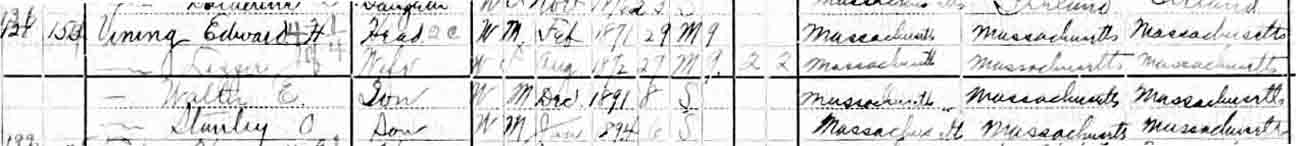 Vining Edward H Head W M Feb 1871 29 M 9 Massachusetts Massachusetts Massachusetts
— Wife W Aug 1872 27 M 9 2 2 Massachusetts Massachusetts Massachusetts
— Walter E. Son W M Dec 1891 8 S Massachusetts Massachusetts Massachusetts
— Stanley O Son W M Jan 1894 6 S Massachusetts Massachusetts Massachusetts